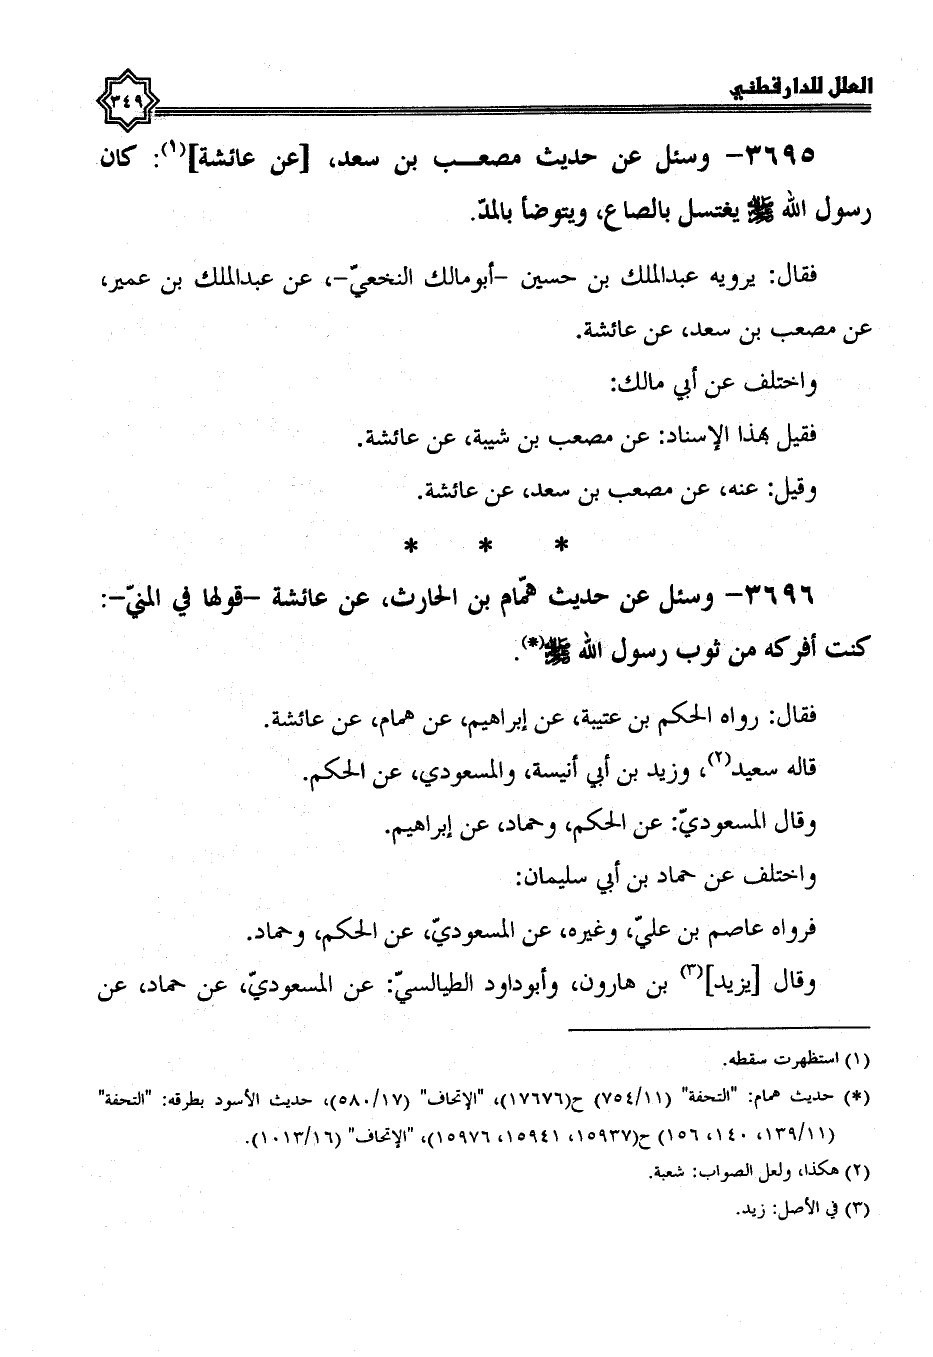 العلل للدارقطني
٣٤٩
٣٦٩٥- وسئل عن حديث مصعب بن سعد، [عن عائشة](١): كان
رسول الله ﷺ يغتسل بالصاع، ويتوضأ بالمدّ.
فقال: يرويه عبدالملك بن حسين -أبومالك النخعيّ-، عن عبدالملك بن عمير،
عن مصعب بن سعد، عن عائشة.
واختلف عن أبي مالك:
فقيل بهذا الإسناد: عن مصعب بن شيبة، عن عائشة.
وقيل: عنه، عن مصعب بن سعد، عن عائشة.
* * *
٣٦٩٦- وسئل عن حديث همّام بن الحارث، عن عائشة -قولها في المنيّ-:
كنت أفركه من ثوب رسول الله ﷺ(*).
فقال: رواه الحكم بن عتيبة، عن إبراهيم، عن همام، عن عائشة.
قاله سعيد(٢)، وزيد بن أبي أنيسة، والمسعودي، عن الحكم.
وقال المسعوديّ: عن الحكم، وحماد، عن إبراهيم.
واختلف عن حماد بن أبي سليمان:
فرواه عاصم بن عليّ، وغيره، عن المسعوديّ، عن الحكم، وحماد.
وقال [يزيد](٣) بن هارون، وأبوداود الطيالسيّ: عن المسعوديّ، عن حماد، عن
(١) استظهرت سقطه.
(*) حديث همام: "التحفة" (٧٥٤/١١) ح(١٧٦٧٦)، "الإتحاف" (٥٨٠/١٧)، حديث الأسود بطرقه: "التحفة"
(١٣٩/١١، ١٤٠، ١٥٦) ح(١٥٩٣٧، ١٥٩٤١، ١٥٩٧٦)، "الإتحاف" (١٠١٣/١٦).
(٢) هكذا، ولعل الصواب: شعبة.
(٣) في الأصل: زيد.